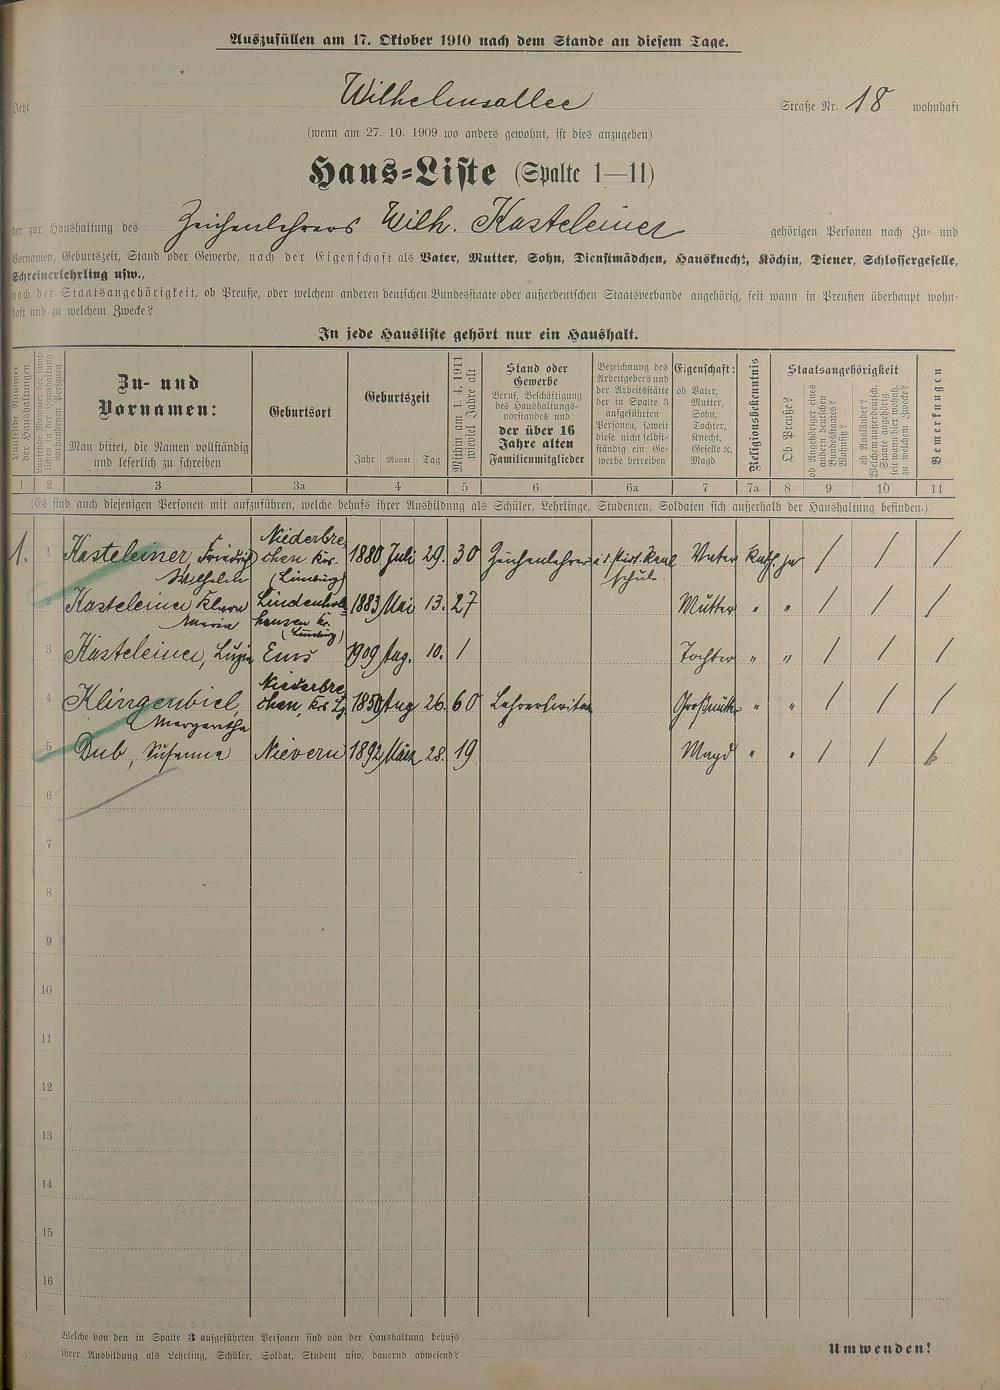 Auszufüllen am 17. Oktober 1910 nach dem Stande an diesem Tage.
Jetzt Wilhelmsallee Straße Nr. 18 wohnhaft
(wenn am 27. 10. 1909 wo anders gewohnt, ist dies anzugeben)
Haus-Liste (Spalte 1—11)
der zur Haushaltung des Zeichenlehrers Wilh. Kasteleiner gehörigen Personen nach Zu- und
Vornamen, Geburtszeit, Stand oder Gewerbe, nach der Eigenschaft als Vater, Mutter, Sohn, Dienstmädchen, Hausknecht, Köchin, Diener, Schlossergeselle,
Schreinerlehrling usw.,
nach der Staatsangehörigkeit, ob Preuße, oder welchem anderen deutschen Bundesstaate oder außerdeutschen Staatsverbande angehörig, seit wann in Preußen überhaupt wohn-
haft und zu welchem Zwecke?
In jede Hausliste gehört nur ein Haushalt.
Laufende Nummer der Haushaltungen
Laufende Nummer der sämt-
lichen in der Haushaltung
vorhandenen Personen
Zu- und
Vornamen:
Man bittet, die Namen vollständig
und leserlich zu schreiben
Geburtsort
Geburtszeit
Jahr Monat Tag
Mithin am 1. 4. 1911
wieviel Jahre alt
Stand oder
Gewerbe
Beruf, Beschäftigung
des Haushaltungs-
vorstandes und
der über 16
Jahre alten
Familienmitglieder
Bezeichnung des
Arbeitgebers und
der Arbeitsstätte
der in Spalte 3
aufgeführten
Personen, soweit
diese nicht selbst-
ständig ein Ge-
werbe betreiben
Eigenschaft:
ob Vater,
Mutter,
Sohn,
Tochter,
Knecht,
Geselle ꝛc,
Magd
Religionsbekenntnis
Staatsangehörigkeit
Ob Preuße?
ob Angehöriger eines
andern deutschen
Bundesstaates?
Wohnsitz?
ob Ausländer?
Welchem außerdeutsch.
Staate angehörig
seit wann hier wohnh.
zu welchem Zwecke?
Bemerkungen
1 2 3 3a 4 5 6 6a 7 7a 8 9 10 11
(Es sind auch diejenigen Personen mit aufzuführen, welche behufs ihrer Ausbildung als Schüler, Lehrlinge, Studenten, Soldaten sich außerhalb der Haushaltung befinden.)
1. 1 Kasteleiner, Friedrich Wilhelm Niederbre-chen Krs. (Limburg) 1880 Juli 29. 30 Zeichenlehrer a. d. schul. Vater Kath. ja / / /
2 Kasteleiner Klara Maria Lindenholz-hausen Kr. (Limburg) 1883 Mai 13. 27 Mutter " " / / /
3 Kasteleiner, Luzia Ems 1909 Aug. 10. 1 Tochter " " / / /
4 Klingenbiel, Margaretha Niederbre-chen, Krs Lg 1850 Aug 26. 60 Großmutter " " / / /
5 Dub, Susanna Nievern 1892 März 28. 19 Magd " " / / /
6
7
8
9
10
11
12
13
14
15
16
Welche von den in Spalte 3 aufgeführten Personen sind von der Haushaltung behufs
ihrer Ausbildung als Lehrling, Schüler, Soldat, Student usw. dauernd abwesend?
Umwenden!